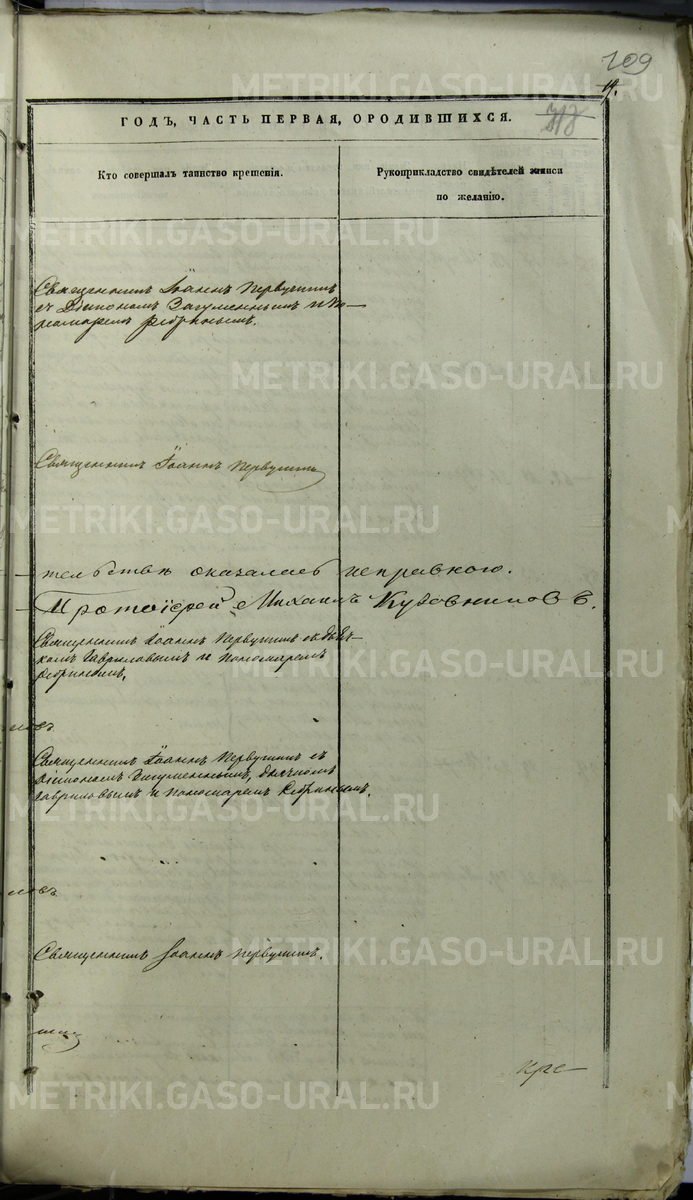 109
19.
ГОДЪ, ЧАСТЬ ПЕРВАЯ, ОРОДИВШИХСЯ.
Кто совершалъ таинство крещенія.
Рукоприкладство свидѣтелей записи
по желанію.
Священникъ Іоаннъ Первушинъ
съ Діакономъ Загуменнымъ и По-
номаремъ Ребринымъ.
Священникъ Іоаннъ Первушинъ
тельствѣ оказалась исправною.
Протоіерей Михаилъ
Священникъ Іоаннъ Первушинъ съ Дья-
комъ Гавриловымъ и Пономаремъ
Ребринымъ.
Священникъ Іоаннъ Первушинъ съ
Діакономъ Загуменнымъ, дьячкомъ
Гавриловымъ и Пономаремъ Ребринымъ.
Священникъ Іоаннъ Первушинъ.
кре-
METRIKI.GASO-URAL.RU